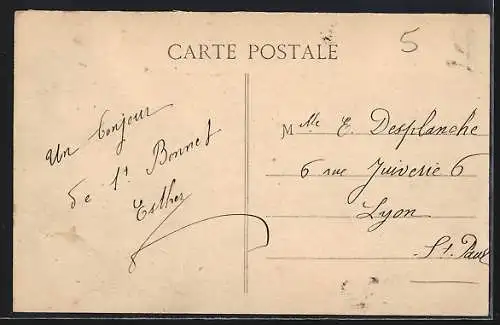 CARTE POSTALE
5
Un bonjour
de St Bonnet
Esther
Mlle E. Desplanche
6 rue Juiverie 6
Lyon
St. Paul